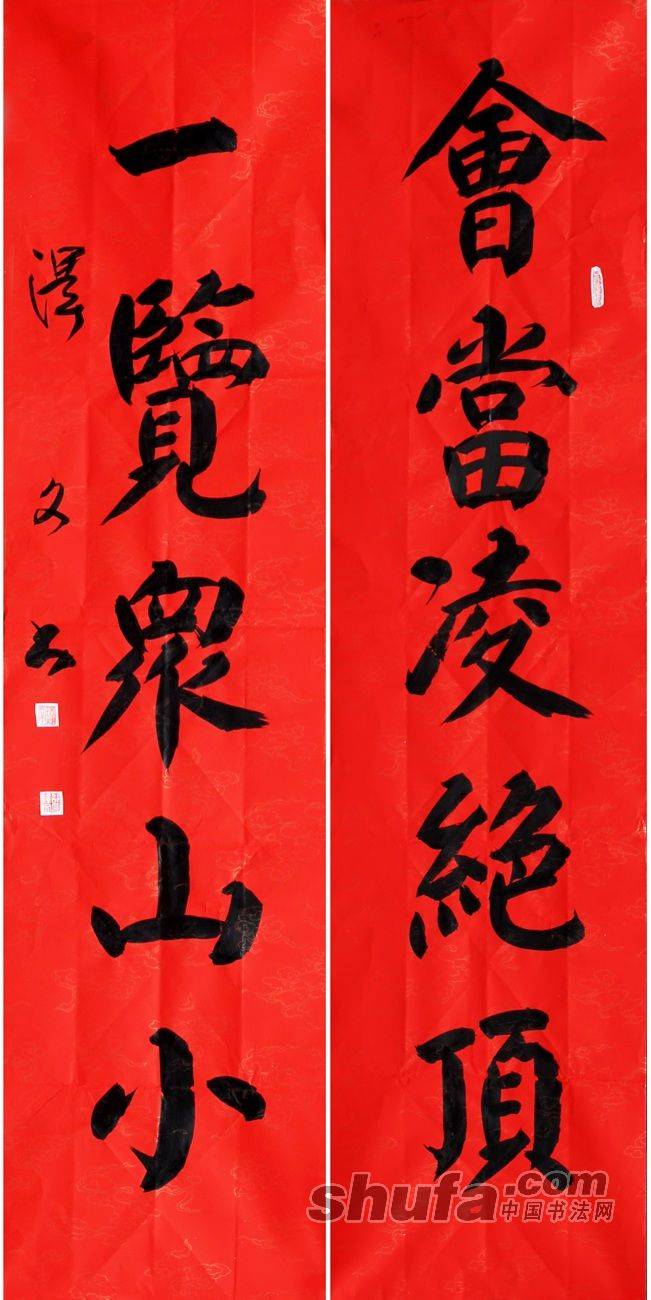 會當凌絕頂
一覽衆山小
澤文书
shufa.com
中国书法网